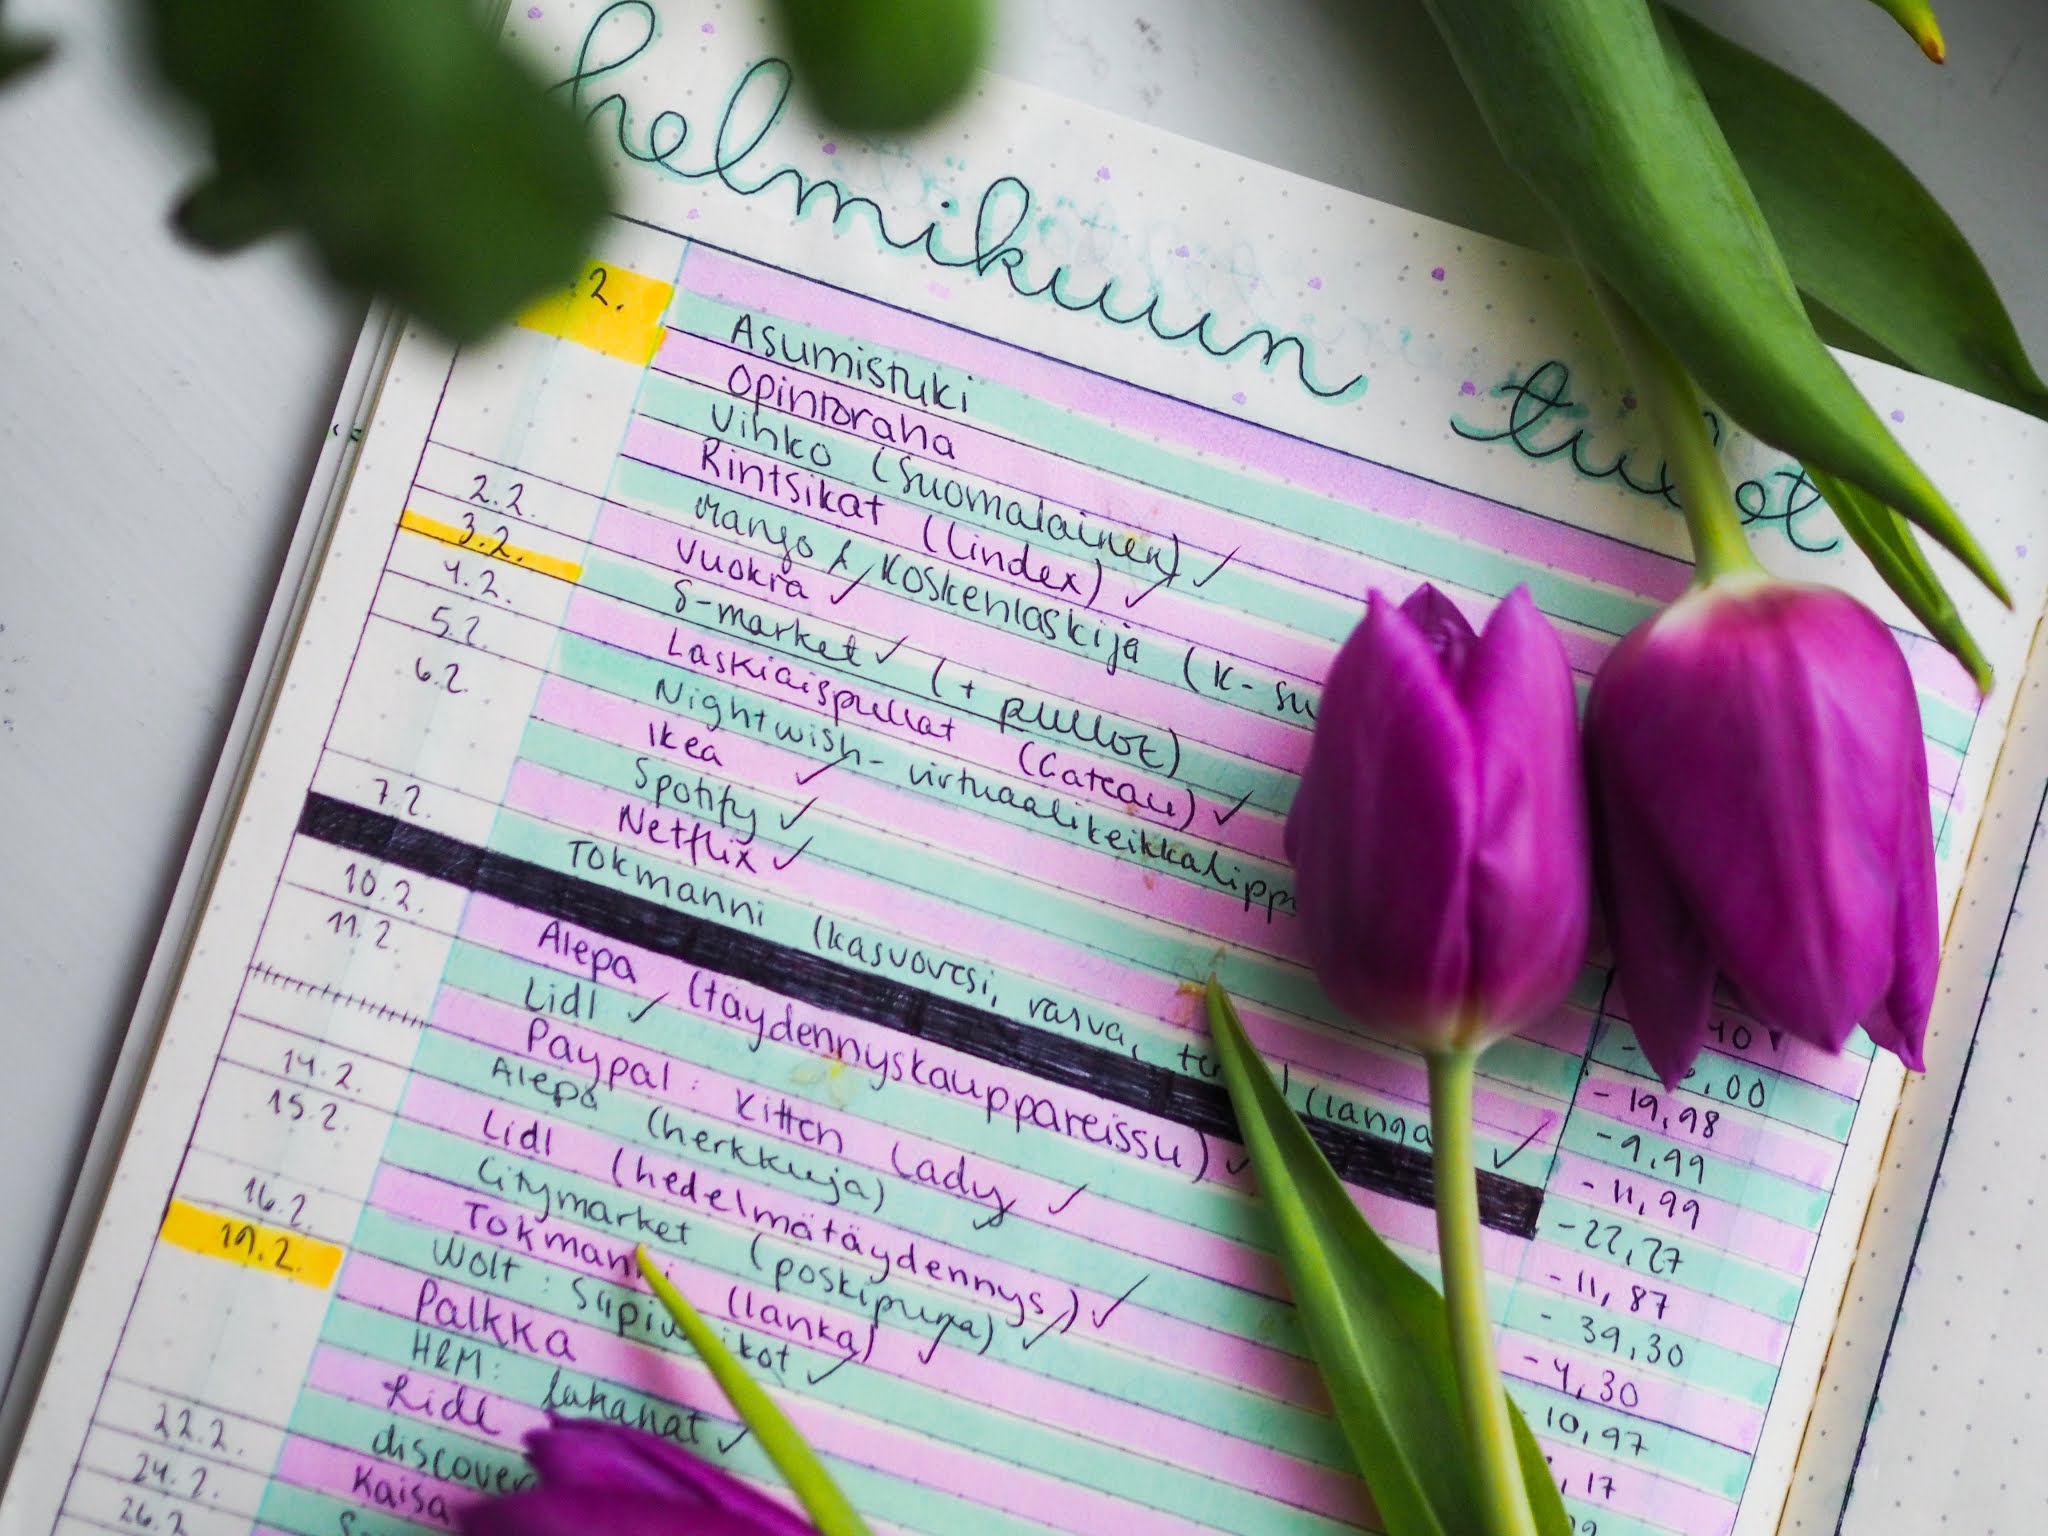 helmikuun
2.
Asumistuki
Opintoraha
Vihko (Suomalainen) ✓
Rintsikat (Lindex) ✓
Mango & Koskenlaskija (K-
2.2. Vuokra ✓
3.2. S-market ✓ (+ pullot)
4.2. Laskiaispullat (Gateau) ✓
5.2. Nightwish-virtuaalikeikkalipp
6.2. Ikea ✓
Spotify ✓
Netflix ✓
7.2. Tokmanni (kasvovesi, rasva, (langa ✓
10.2. Alepa (täydennyskauppareissu) ✓
11.2. Lidl ✓
Paypal: Kitten Lady ✓
14.2. Alepa (herkkuja) ✓
15.2. Lidl (hedelmätäydennys) ✓
Citymarket (poskipuna) ✓
16.2. Tokmanni (lanka) ✓
19.2. Wolt: ✓
Palkka
H&M: lakanat ✓
Lidl
22.2. discover
24.2. Kaisa
26.2
,00
-19,98
-9,99
-11,99
-22,27
-11,87
-39,30
-4,30
10,97
,17